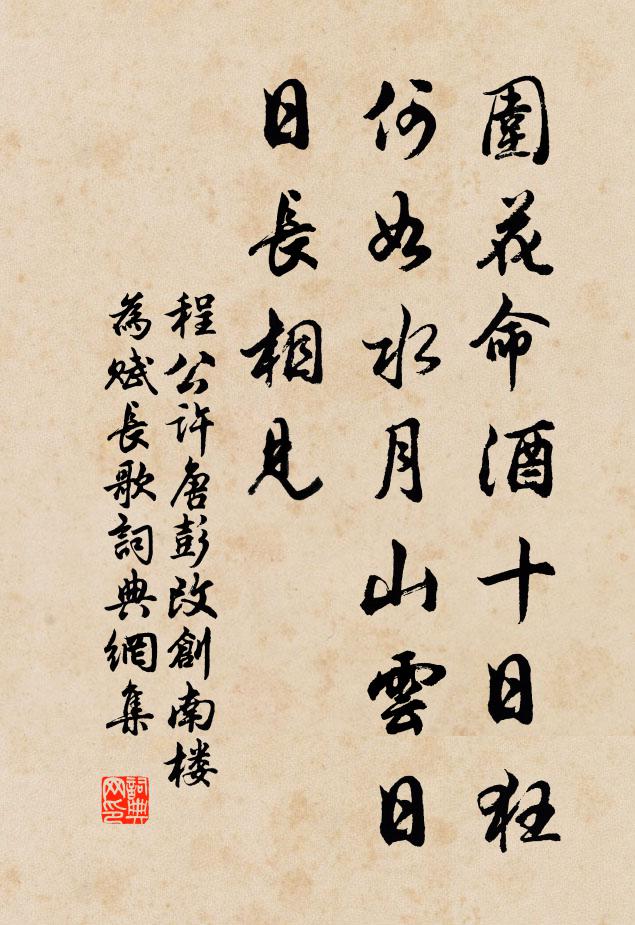 圍花命酒十日狂
何如水月山雲日
日長相見
程公許唐彭改創南楼
為賦長歌詞典網集
詞典網印